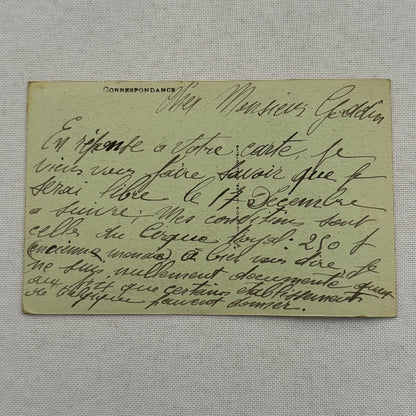 CORRESPONDANCE
Cher Monsieur Goddin
En réponse à votre carte, je
viens vous faire savoir que je
serai libre le 17 Décembre
a suivre; Mes condition sont
celles du Cirque Royal. 250 f
(ancienne monnaie) a bien vous dire je
ne suis nullement documenté quant
aux prix que certains etablissements
de Belgique peuvent donner.